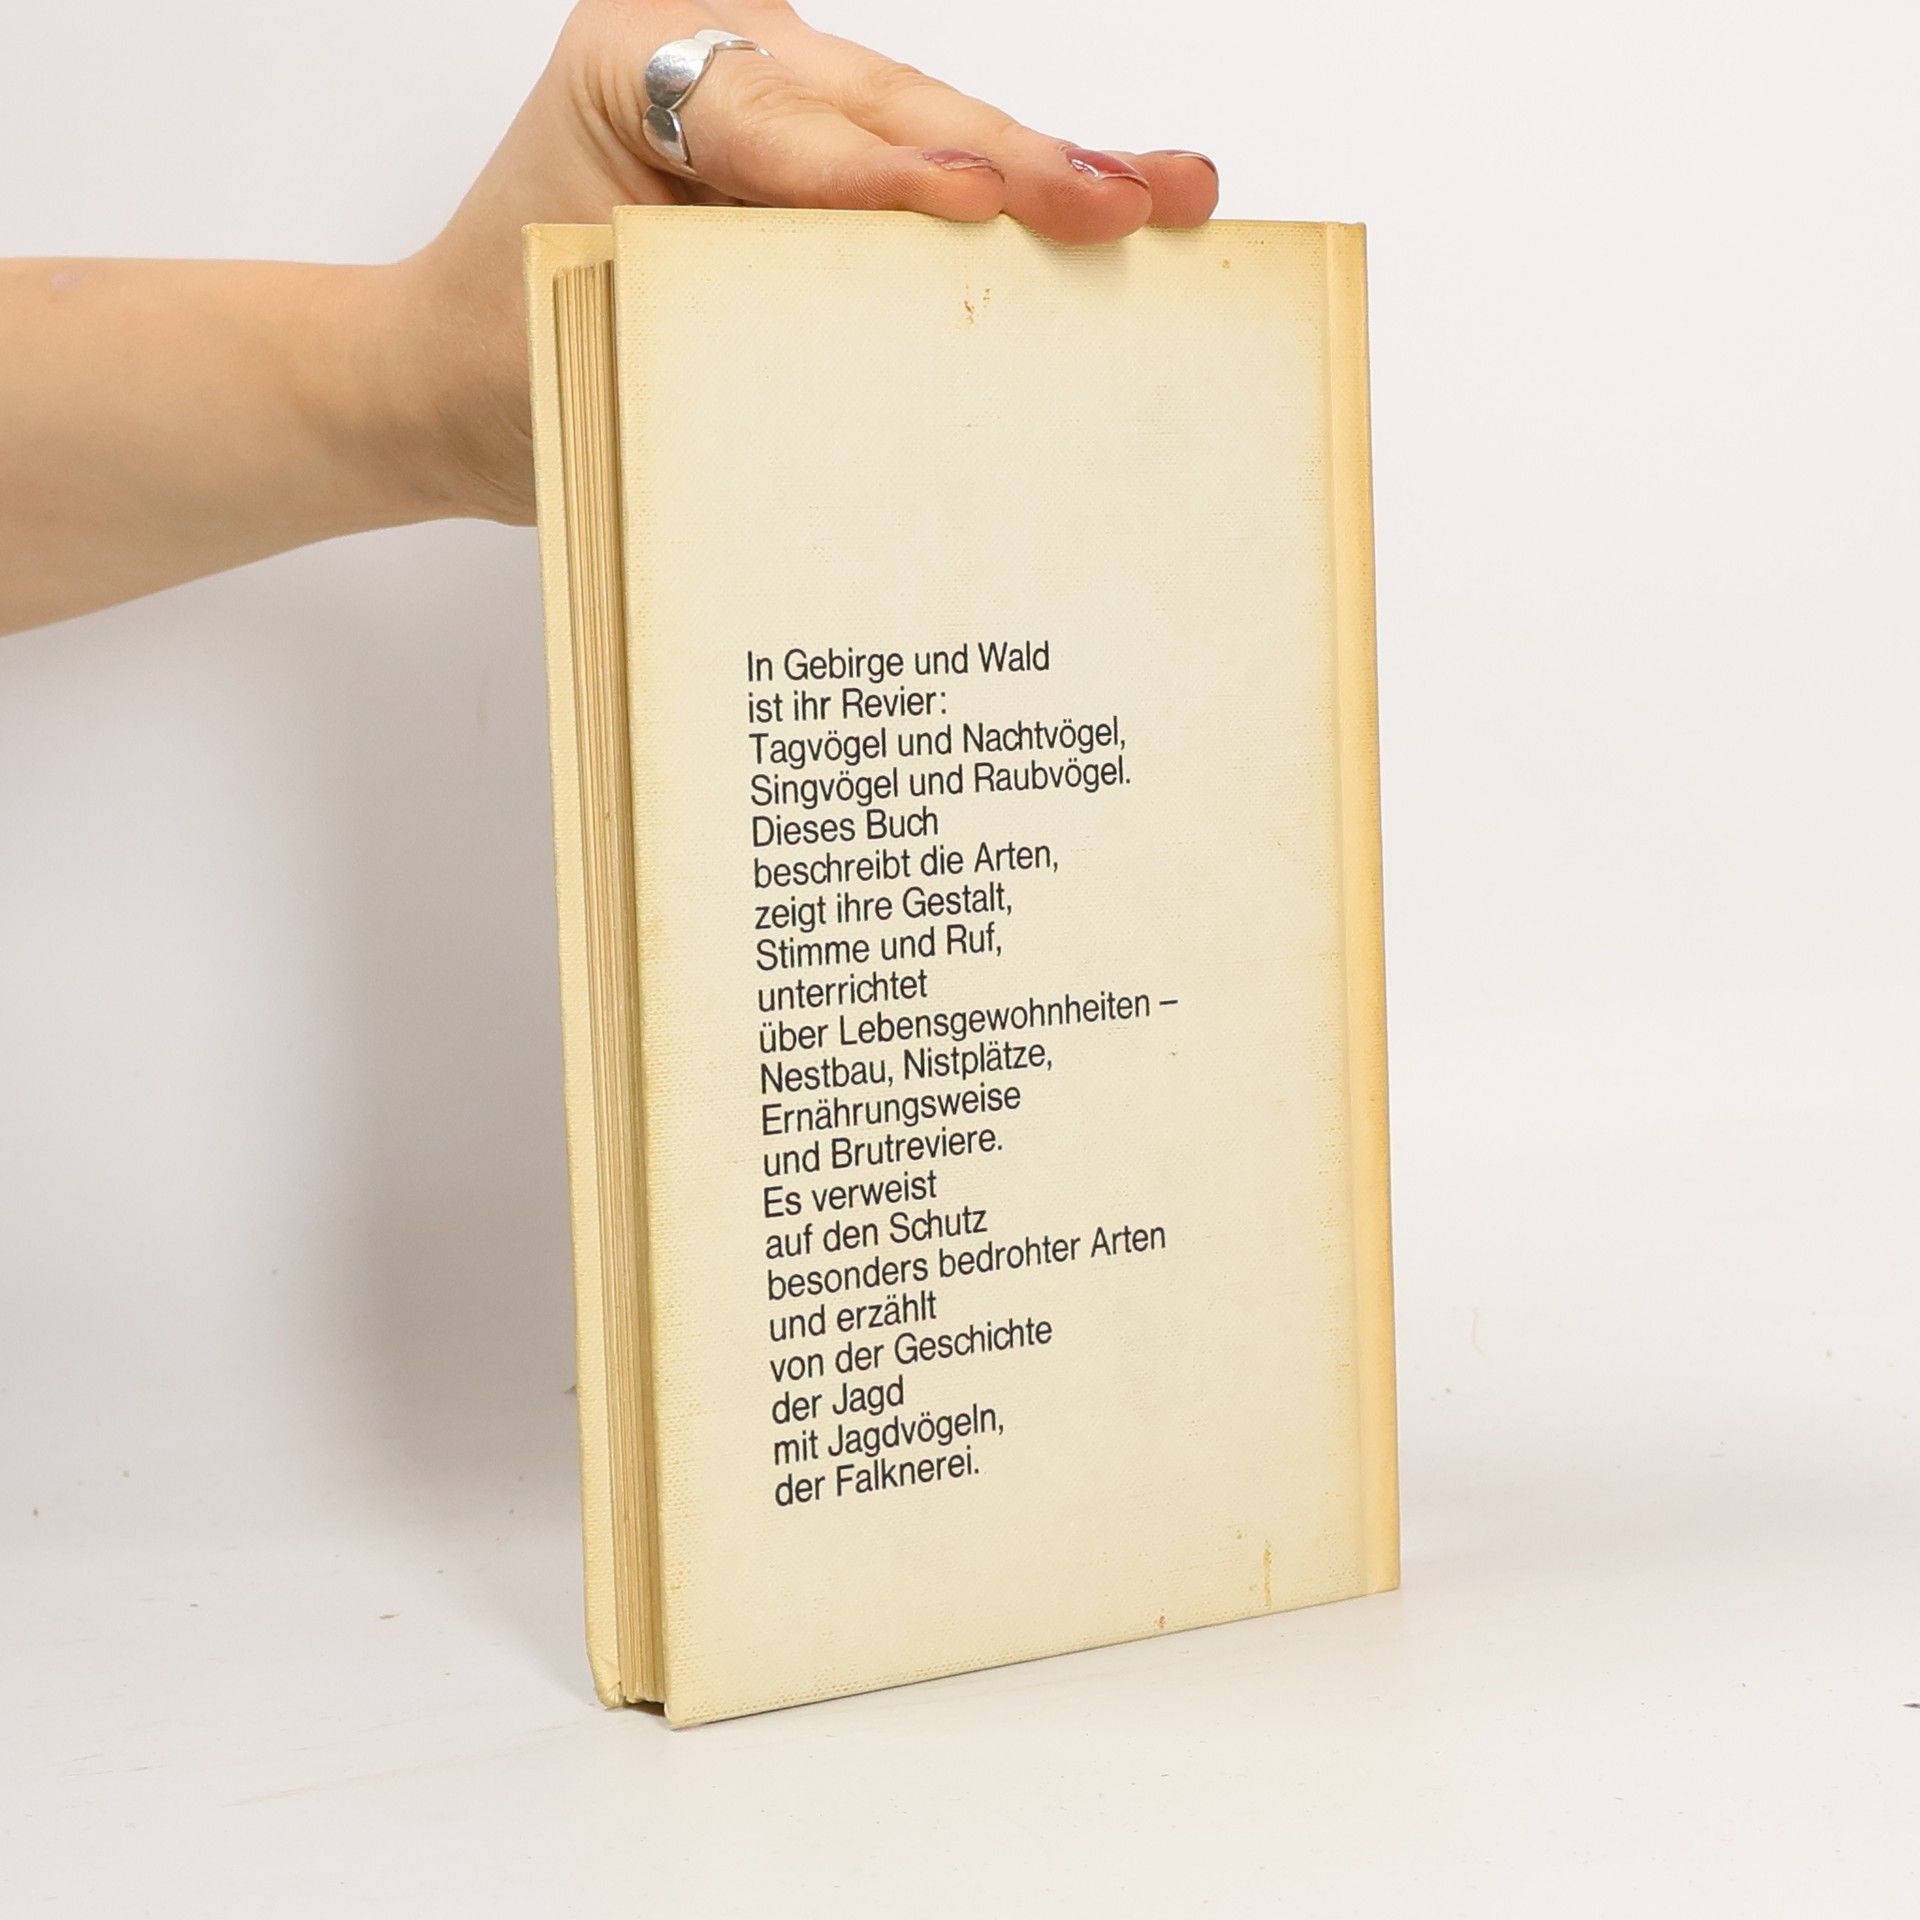 In Gebirge und Wald
ist ihr Revier:
Tagvögel und Nachtvögel,
Singvögel und Raubvögel.
Dieses Buch
beschreibt die Arten,
zeigt ihre Gestalt,
Stimme und Ruf,
unterrichtet
über Lebensgewohnheiten –
Nestbau, Nistplätze,
Ernährungsweise
und Brutreviere.
Es verweist
auf den Schutz
besonders bedrohter Arten
und erzählt
von der Geschichte
der Jagd
mit Jagdvögeln,
der Falknerei.